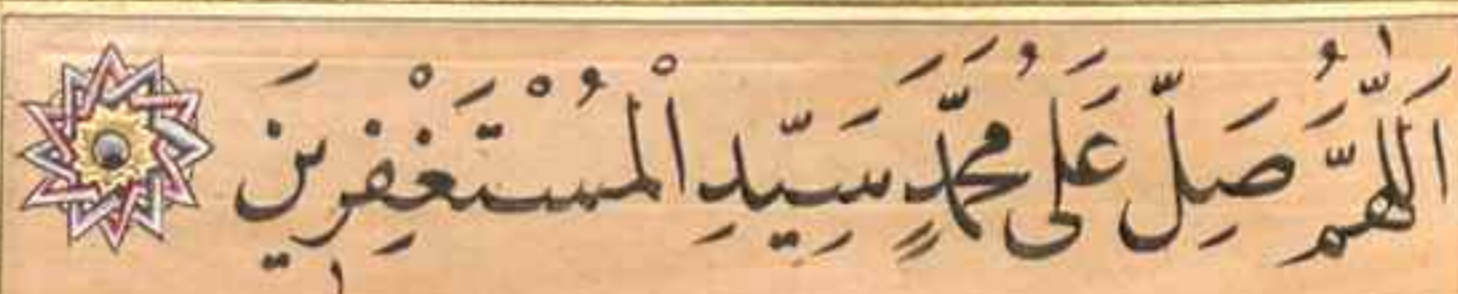 اَللّٰهُمَّ صَلِّ عَلٰى مُحَمَّدٍ سَيِّدِ الْمُسْتَغْفِرِينَ